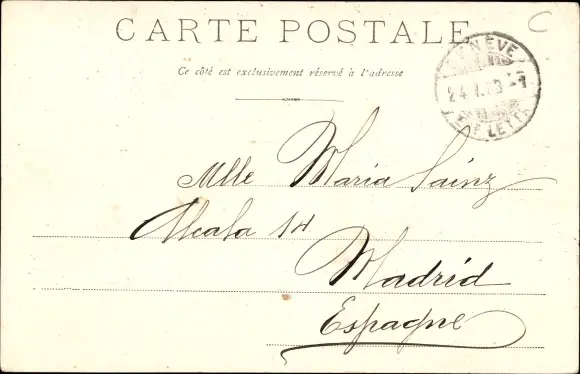 CARTE POSTALE
Ce côté est exclusivement réservé à l'adresse
GENÈVE
24
LETTR
Mlle Maria Sainz
Alcala 14
Madrid
Espagne